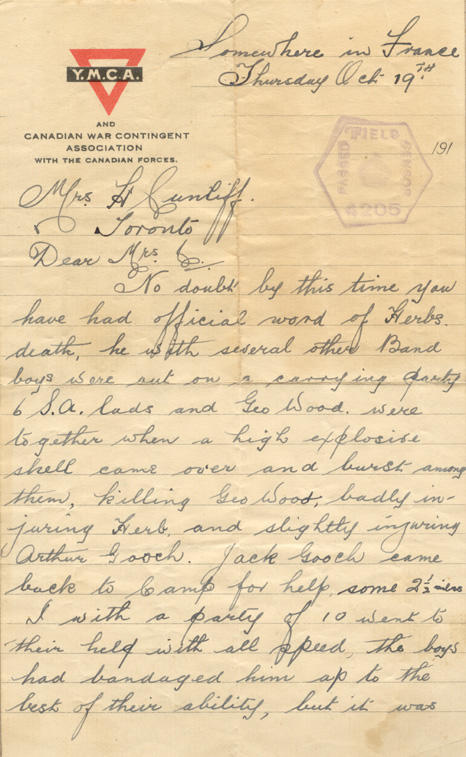 Somewhere in France
Thursday Oct 19TH
Y.M.C.A.
AND
CANADIAN WAR CONTINGENT
ASSOCIATION
WITH THE CANADIAN FORCES.
191
PASSED FIELD CENSOR
4205
Mrs H Cunliff.
Toronto
Dear Mrs C.
No doubt by this time you
have had official word of Herbs
death, he with several other Band
boys were out on a carrying party
6 S.A. lads and Geo Wood. were
together when a high explosive
shell came over and burst among
them, killing Geo Wood, badly in-
juring Herb, and slightly injuring
Arthur Gooch. Jack Gooch came
back to Camp for help, some 2½ miles
I with a party of 10 went to
their help with all speed, the boys
had bandaged him up to the
best of their ability, but it was